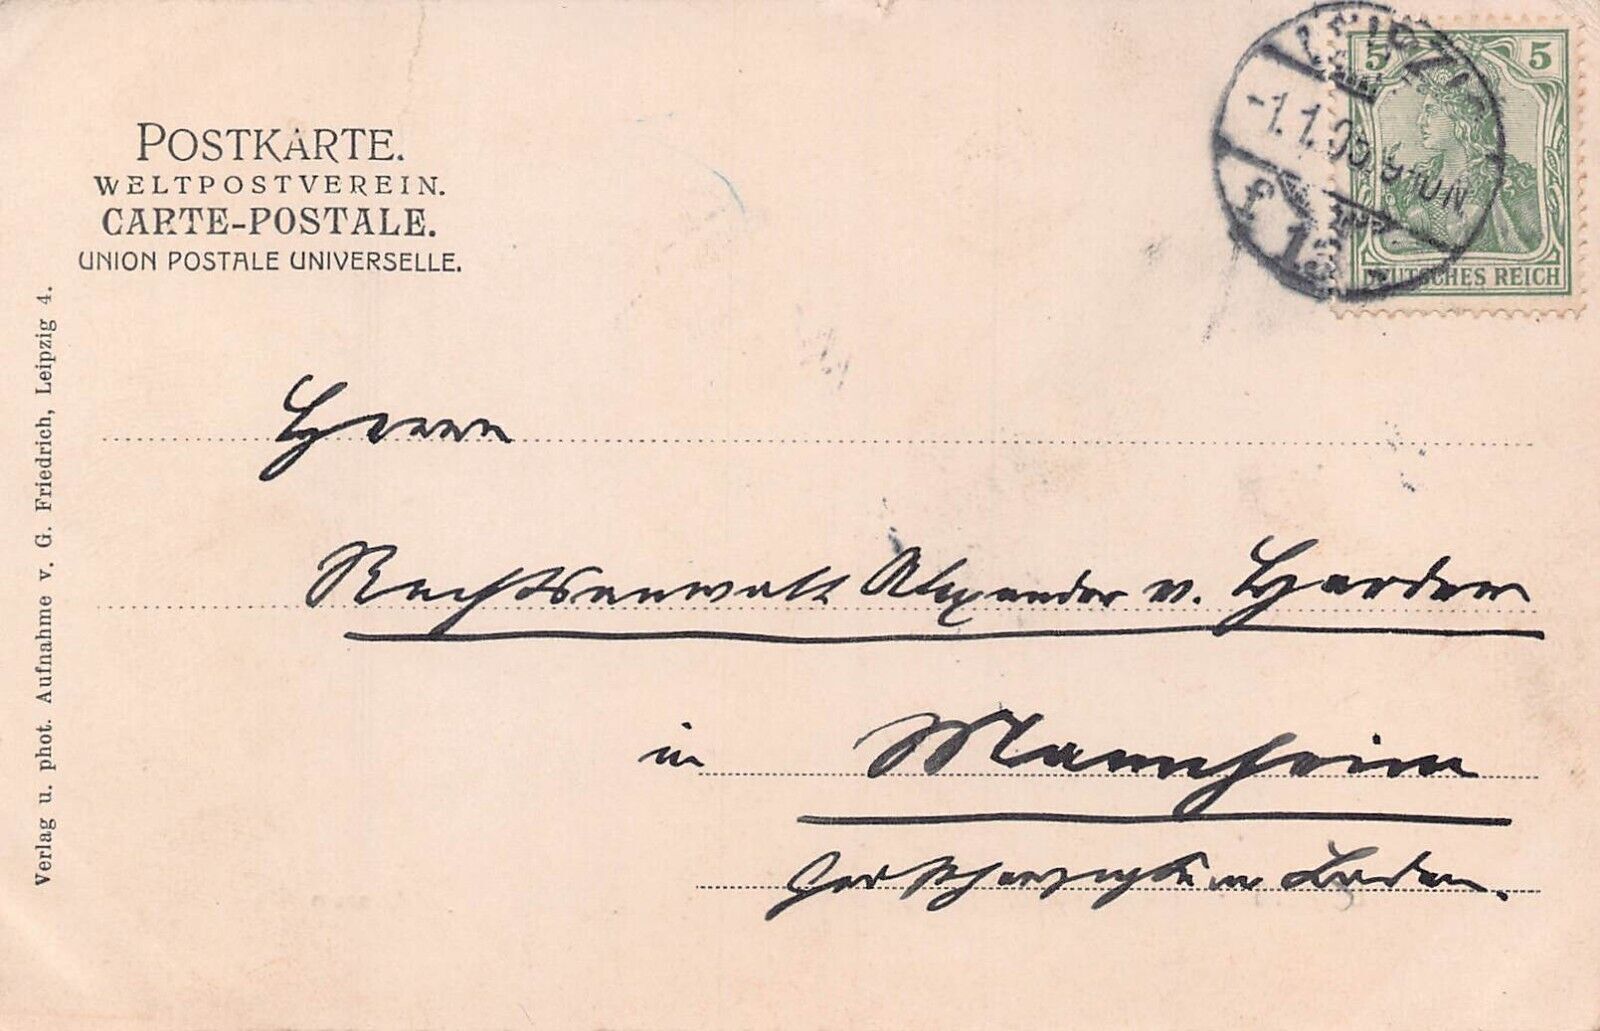 POSTKARTE.
WELTPOSTVEREIN.
CARTE-POSTALE.
UNION POSTALE UNIVERSELLE.
LEIPZIG
5 5
DEUTSCHES REICH
Herrn
Rechtsanwalt Alexander v. Harder
in Mannheim
Großherzogtum Baden.
Verlag u. phot. Aufnahme v. G. Friedrich, Leipzig 4.